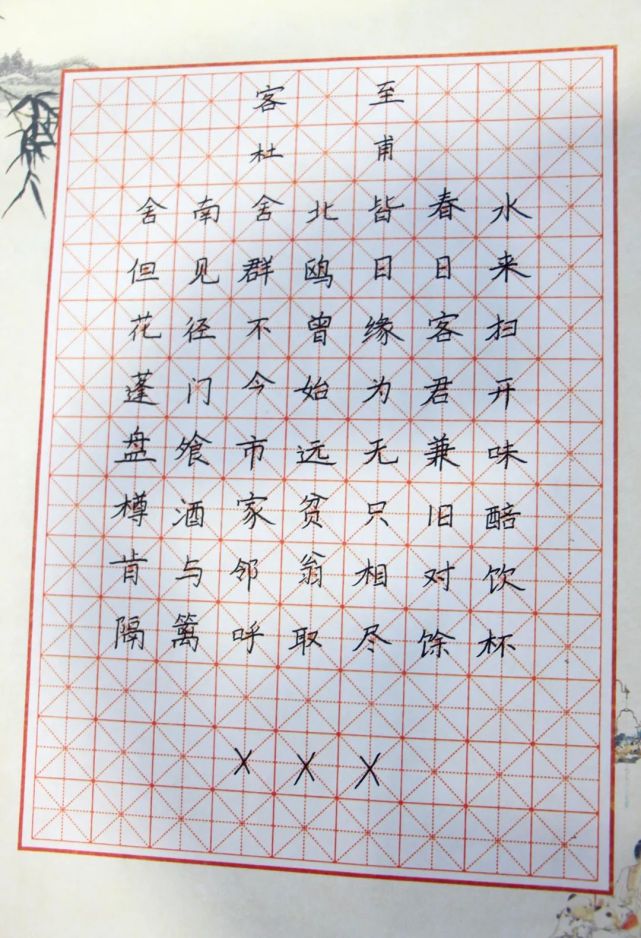 客至
杜甫
舍南舍北皆春水
但见群鸥日日来
花径不曾缘客扫
蓬门今始为君开
盘飧市远无兼味
樽酒家贫只旧醅
肯与邻翁相对饮
隔篱呼取尽馀杯
XXX